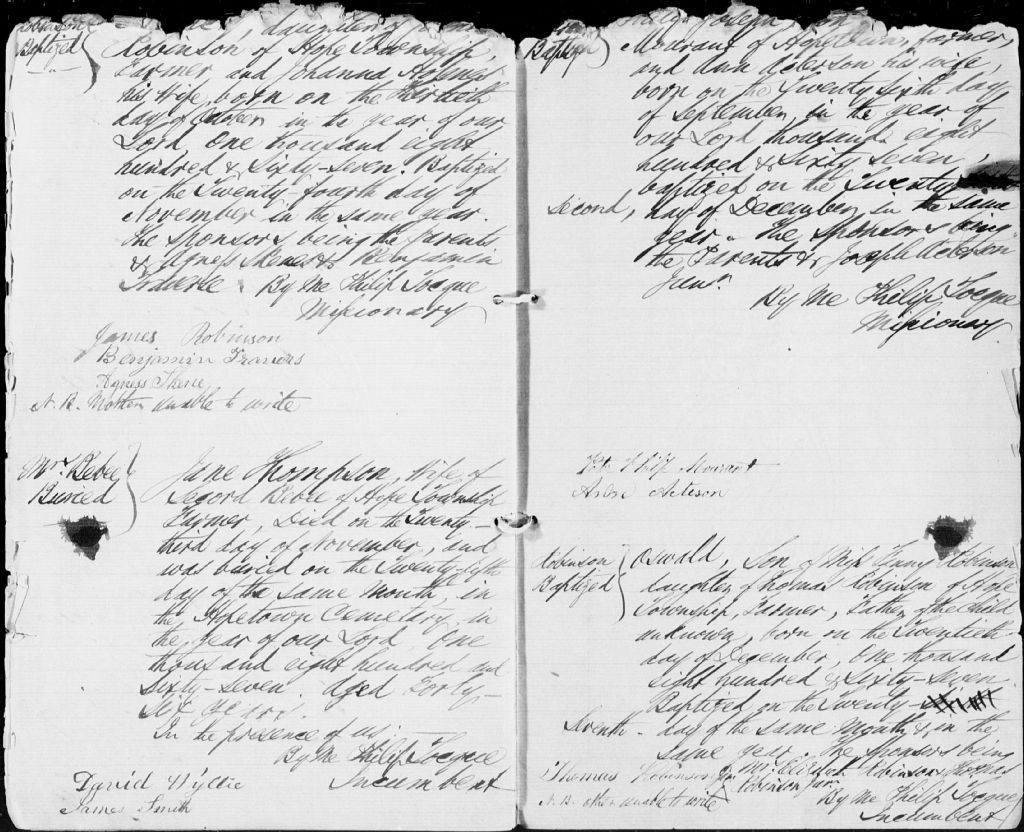 Robinson
Baptized
daughter of
Robinson of Hope Township,
Farmer and Johanna
his Wife, born on the Thirtieth
day of October in the year of our
Lord One thousand eight
hundred & Sixty-Seven. Baptized
on the Twenty fourth day of
November in the same year.
The Sponsors being the Parents
& Agness Skenes & Benjamin
Traverse. By Me Philip Tocque
Missionary
James Robinson
Benjamin Travers
Agness Skene
N.B. Mother unable to write
Mrs. Bebee
Buried
Jane Thompson, Wife of
Segord Bebee of Hope Township
Farmer, Died on the Twenty-
third day of November, and
was buried on the Twenty-fifth
day of the same Month, in
the Hopetown Cemetary, in
the year of our Lord One
thousand eight hundred and
Sixty-Seven. Aged Forty-
Six years.
In the presence of us.
By Me Philip Tocque
Incumbent
David Wyllie
James Smith
Baptized
Philip Joseph, son
Mourant of Hopetown, farmer,
and Ann Acteson his wife,
born on the Twenty sixth day
of September, in the year of
our Lord thousand eight
hundred & Sixty Seven,
baptized on the Twenty
Second, day of December, in the same
year. The Sponsors being
the Parents & Joseph Acteson
Junr.
By Me Philip Tocque
Missionary
Philip Mourant
Acteson
Robinson
Baptized
Oswald, Son of Miss Fanny Robinson
daughter of Thomas Robinson of Hope
Township, Farmer, Father of the Child
unknown, born on the Twentieth
day of December, One thousand
eight hundred & Sixty-Seven
Baptized on the Twenty-
Seventh - day of the same Month & in the
same year. The Sponsors being
Mrs Elizabeth Robinson & Thomas
Robinson Junr.
Thomas Robinson Jr
By Me Philip Tocque
N.B. other unable to write
Incumbent